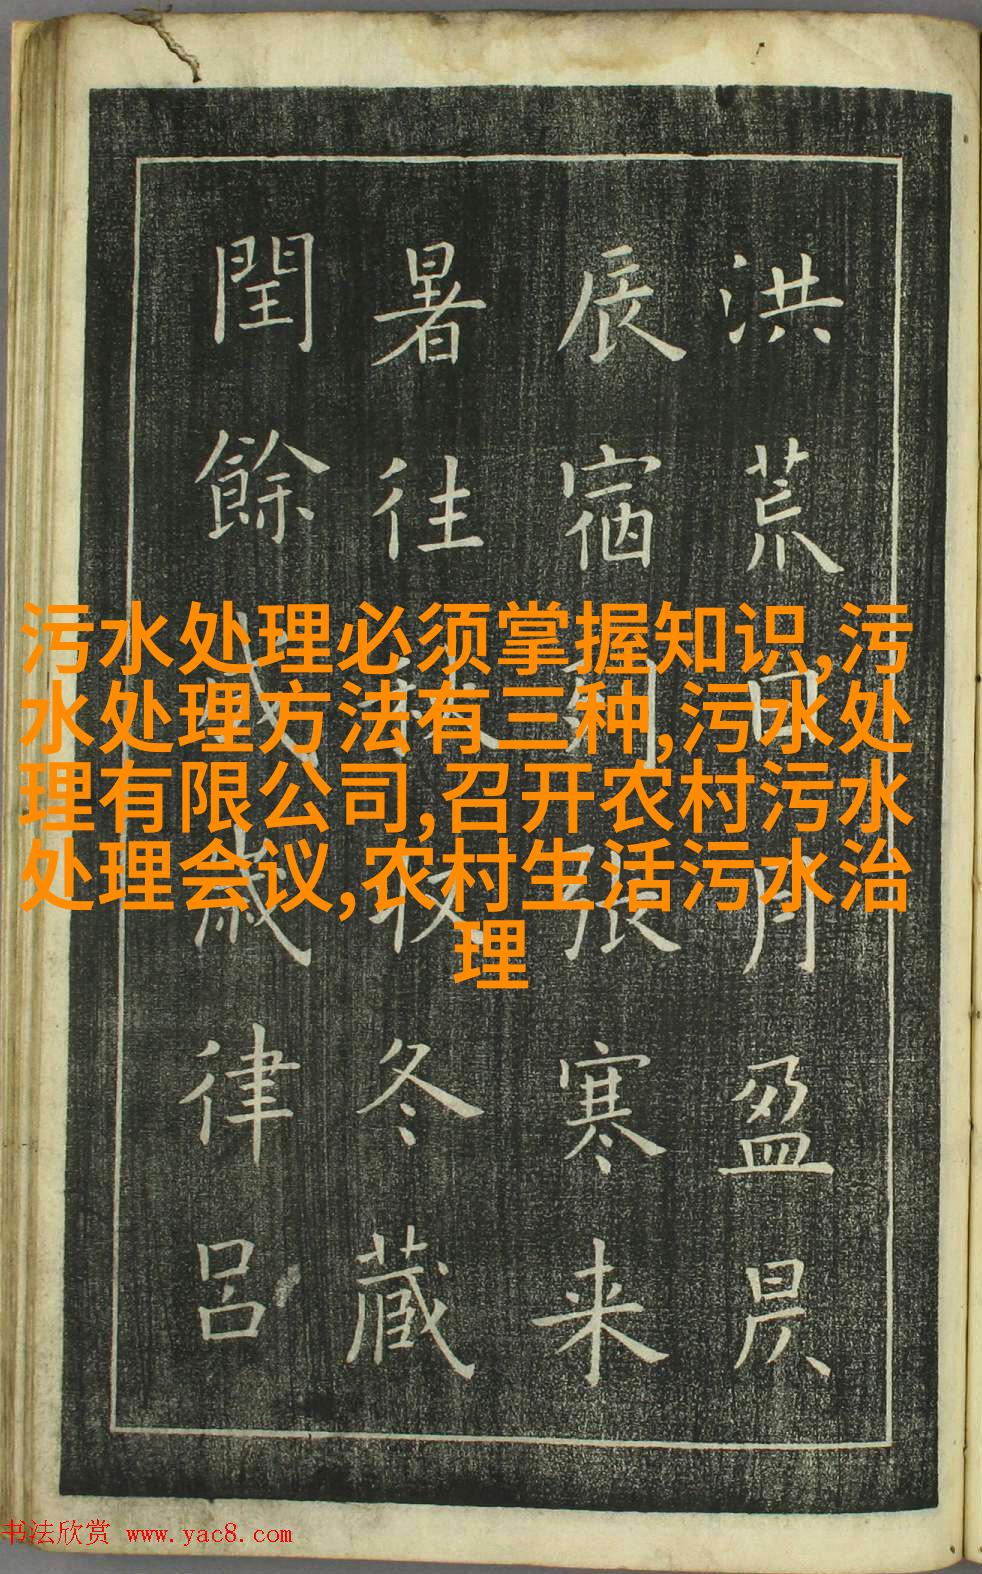 洪荒日月盈昃
辰宿列張寒来
暑往秋收冬藏
閏餘成歲律呂
污水处理必须掌握知识,污
水处理方法有三种,污水处
理有限公司,召开农村污水
处理会议,农村生活污水治
理
书法欣赏 www.yac8.com